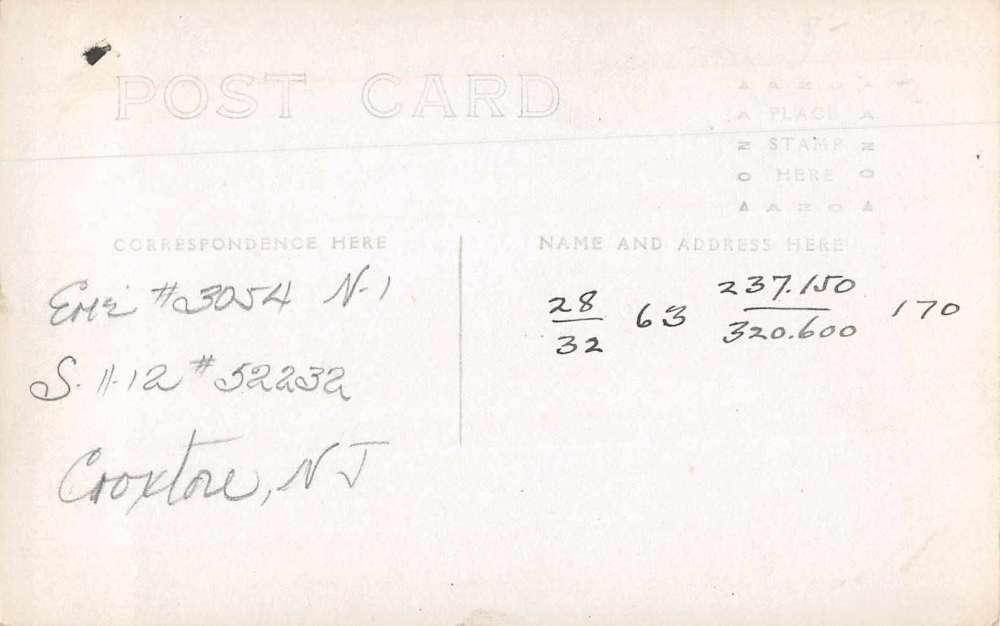 POST CARD
AZO
PLACE
STAMP
HERE
AZO
CORRESPONDENCE HERE
NAME AND ADDRESS HERE
Erie #3054 N-1
S. 11-12 #52232
Croxton, NJ
28 63 237.150 170
32 320.600